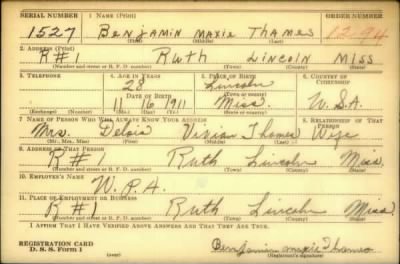 SERIAL NUMBER 1. NAME (Print) ORDER NUMBER
1527 Benjamin Maxie Thames 1294
(First) (Middle) (Last)
2. ADDRESS (Print)
R#1 Ruth Lincoln Miss
(Number and street or R. F. D. number) (Town) (County) (State)
3. TELEPHONE 4. AGE IN YEARS 5. PLACE OF BIRTH 6. COUNTRY OF CITIZENSHIP
28 Lincoln
DATE OF BIRTH (Town or county)
11 16 1911 Miss. U.S.A.
(Exchange) (Number) (Mo.) (Day) (Yr.) (State or country)
7. NAME OF PERSON WHO WILL ALWAYS KNOW YOUR ADDRESS 8. RELATIONSHIP OF THAT PERSON
Mrs. Delois Vivian Thames Wife
(Mr., Mrs., Miss) (First) (Middle) (Last)
9. ADDRESS OF THAT PERSON
R#1 Ruth Lincoln Miss.
(Number and street or R. F. D. number) (Town) (County) (State)
10. EMPLOYER'S NAME
W.P.A.
11. PLACE OF EMPLOYMENT OR BUSINESS
R#1 Ruth Lincoln Miss
(Number and street or R. F. D. number) (Town) (County) (State)
I AFFIRM THAT I HAVE VERIFIED ABOVE ANSWERS AND THAT THEY ARE TRUE.
REGISTRATION CARD
D. S. S. Form 1 (over) Benjamin Maxie Thames
(Registrant's signature)